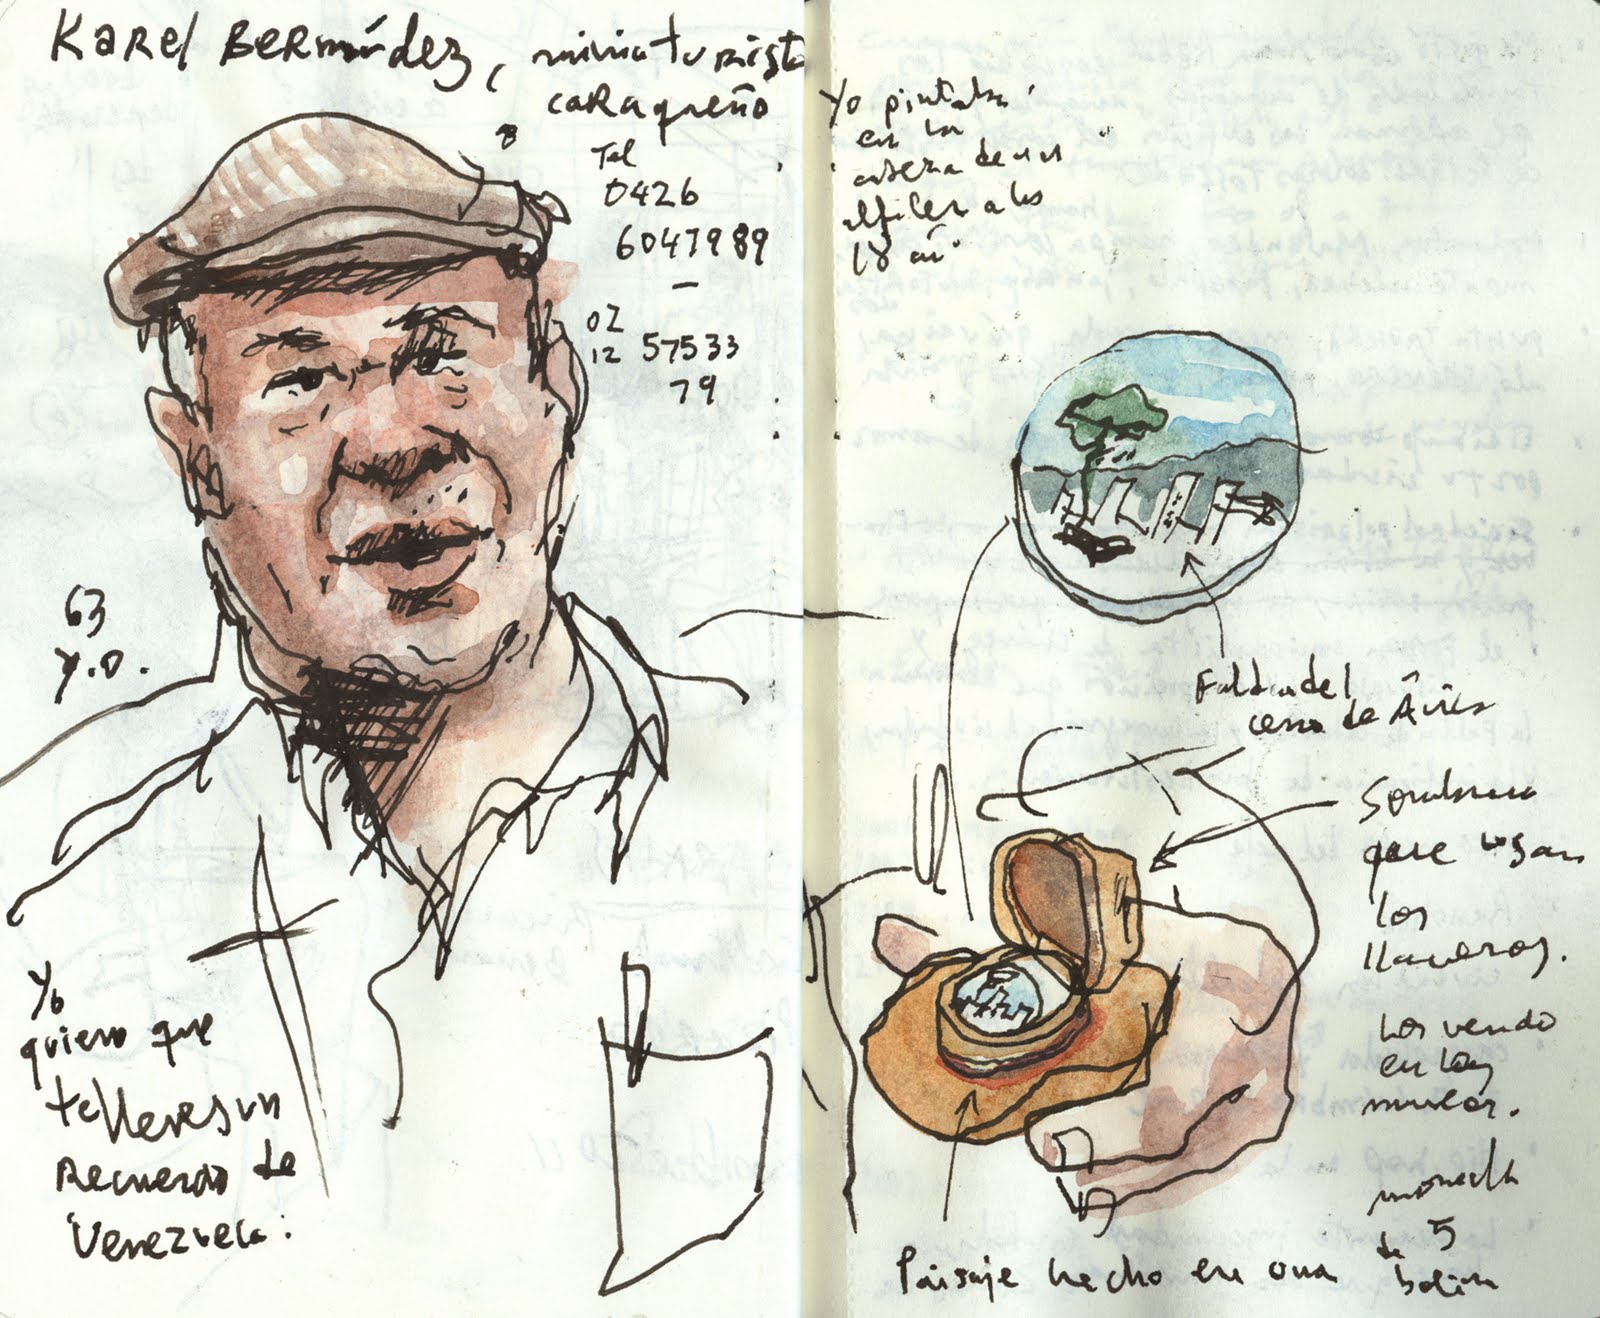 Karel Bermúdez, miniaturista
caraqueño
Tel
0426
6047989
—
02
12 57533
79
63
y.o.
Yo
quiero que
te lleves un
recuerdo de
Venezuela.
Yo pintaba
en la
cabeza de un
alfiler a los
18 añ.
Falda del
cerro de Ávila
Sombrero
que usan
los
llaneros.
Los vendo
en los
moneda
de 5
boliv
Paisaje hecho en una